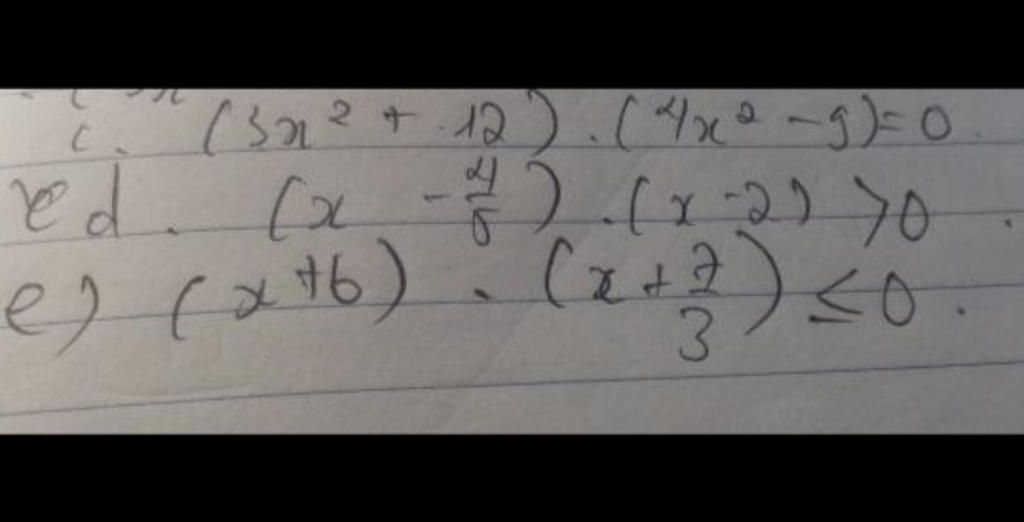 c. (3x² + 12) . (4x² - 9) = 0
d. (x - 4/5) . (x - 2) > 0 .
e) (x + 6) . (x + 7/3) ≤ 0 .